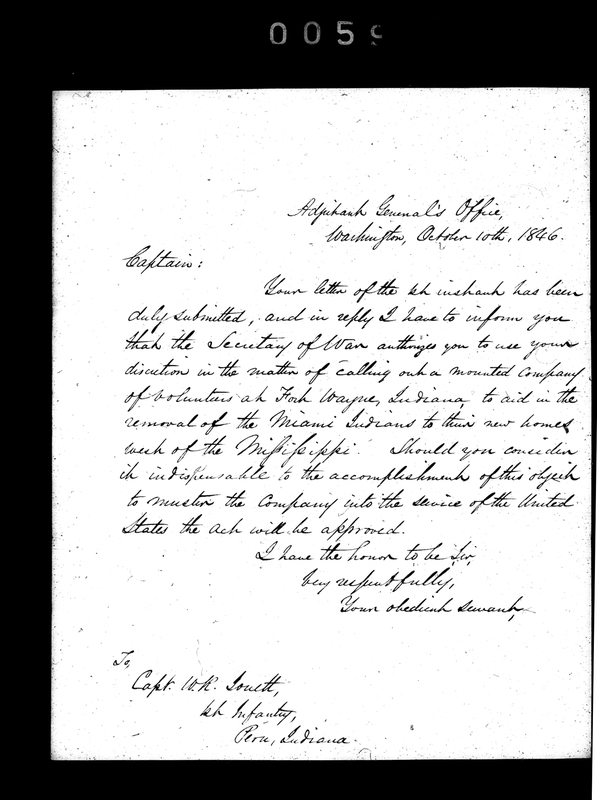 005
Adjutant General's Office,
Washington, October 10th, 1846.
Captain:
Your letter of the 1st instant has been
duly submitted, and in reply I have to inform you
that the Secretary of War authorizes you to use your
discretion in the matter of calling out a mounted Company
of Volunteers at Fort Wayne, Indiana to aid in the
removal of the Miami Indians to their new homes
west of the Mississippi. Should you consider
it indispensable to the accomplishment of this object
to muster the Company into the service of the United
States the act will be approved.
I have the honor to be Sir,
Very respectfully,
Your obedient servant,
To,
Capt. W.R. Jouett,
1st Infantry,
Peru, Indiana.